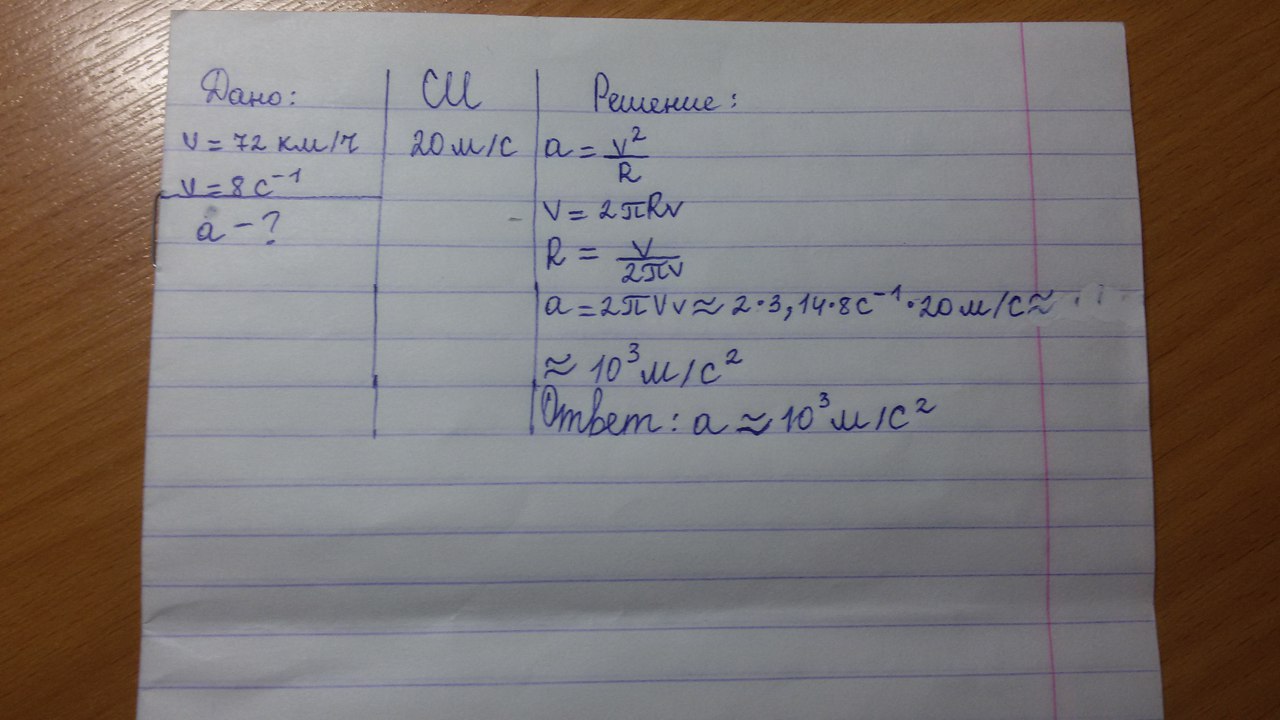 Дано:
v = 72 км/ч
ν = 8 с⁻¹
a - ?
СИ
20 м/с
Решение:
a = v²/R
v = 2πRν
R = v/2πν
a = 2πVν ≈ 2·3,14·8с⁻¹·20м/с ≈
≈ 10³ м/с²
Ответ: a ≈ 10³ м/с²